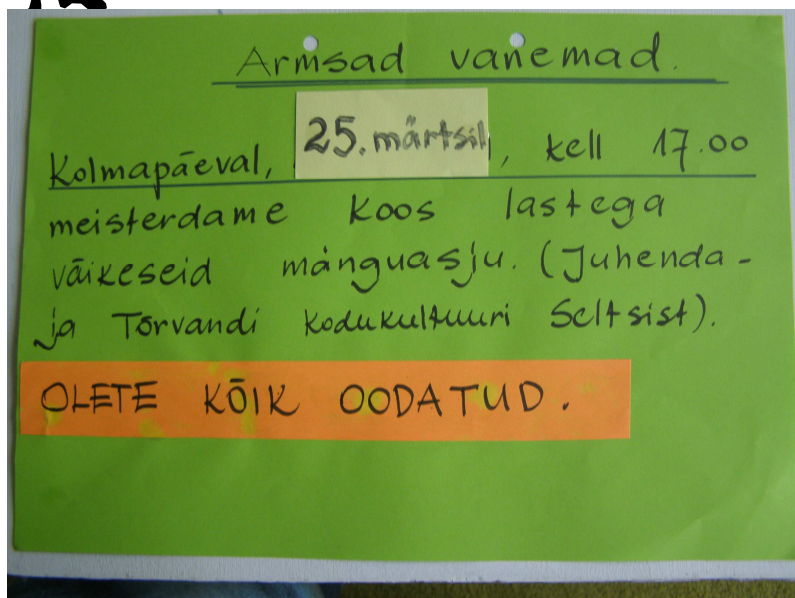 Armsad vanemad.
Kolmapäeval, 25. märtsil, kell 17.00
meisterdame koos lastega
väikeseid mänguasju. (Juhenda-
ja Tõrvandi kodukultuuri Seltsist).
OLETE KÕIK OODATUD.